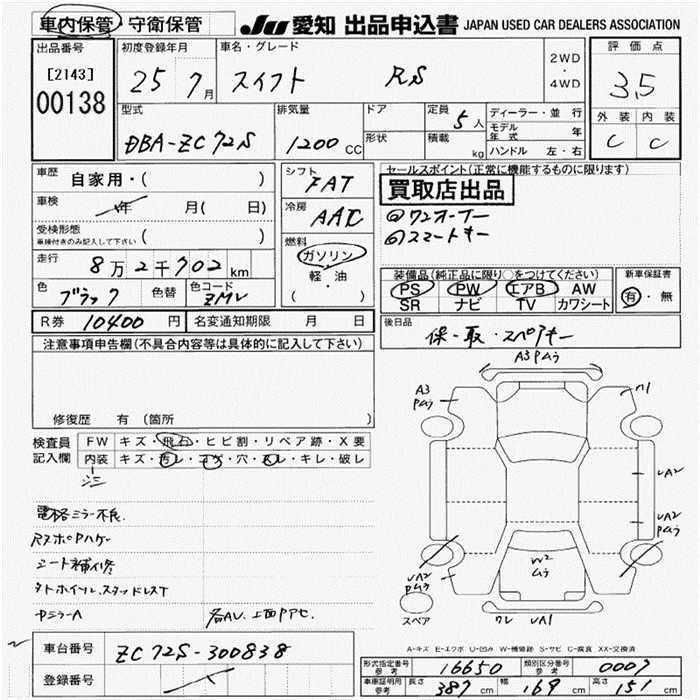 車内保管・守衛保管 JU 愛知 出品申込書 JAPAN USED CAR DEALERS ASSOCIATION
出品番号 初度登録年月 車名・グレード 2WD・4WD 評価点
[2143] 25 7月 スイフト RS 3.5
00138
型式 排気量 ドア 定員 5人 ディーラー・並行 外装 内装
DBA-ZC72S 1200CC 形状 積載 kg モデル年式 年 C C
ハンドル 左・右
車歴 自家用・( ) シフト FAT セールスポイント(正常に機能するものに限ります)
買取店出品
車検 年 月( 日) 冷房 AAC ◎ワンオーナー
受検形態 ( ) ◎スマートキー
車検付きのみ記入して下さい
走行 8万2千702km 燃料 ガソリン 軽・油 ( )
装備品(純正品に限り○をつけてください) 新車保証書
PS PW エアB AW 有・無
色 ブラック 色替 色コード ZMV SR ナビ TV カワシート
R券 10400円 名変通知期限 月 日 後日品
保・取・スペアキー
注意事項申告欄(不具合内容等は具体的に記入して下さい)
A3 Pムラ
A3 Pムラ
修復歴 有(箇所 )
検査員記入欄 FW キズ・飛石・ヒビ割・リペア跡・X要
内装 キズ・汚レ・コゲ・穴・スレ・キレ・破レ
シミ
UA2
電格ミラー不良
UA2 Pムラ
RスポPハゲ
シート補修
W2 ムラ
UA2 Pムラ
タイホイル.スタッドレスT
中ミラーA
スペア
ワレ UA1
A-キズ E-エクボ U-凹み W-補修跡 S-サビ C-腐食 XX-交換済
車台番号 ZC72S-300838
形式指定番号 参考 16650 類別区分番号 参考 0007
登録番号
車庫証明用 参考 長さ 387cm 幅 169cm 高さ 151cm